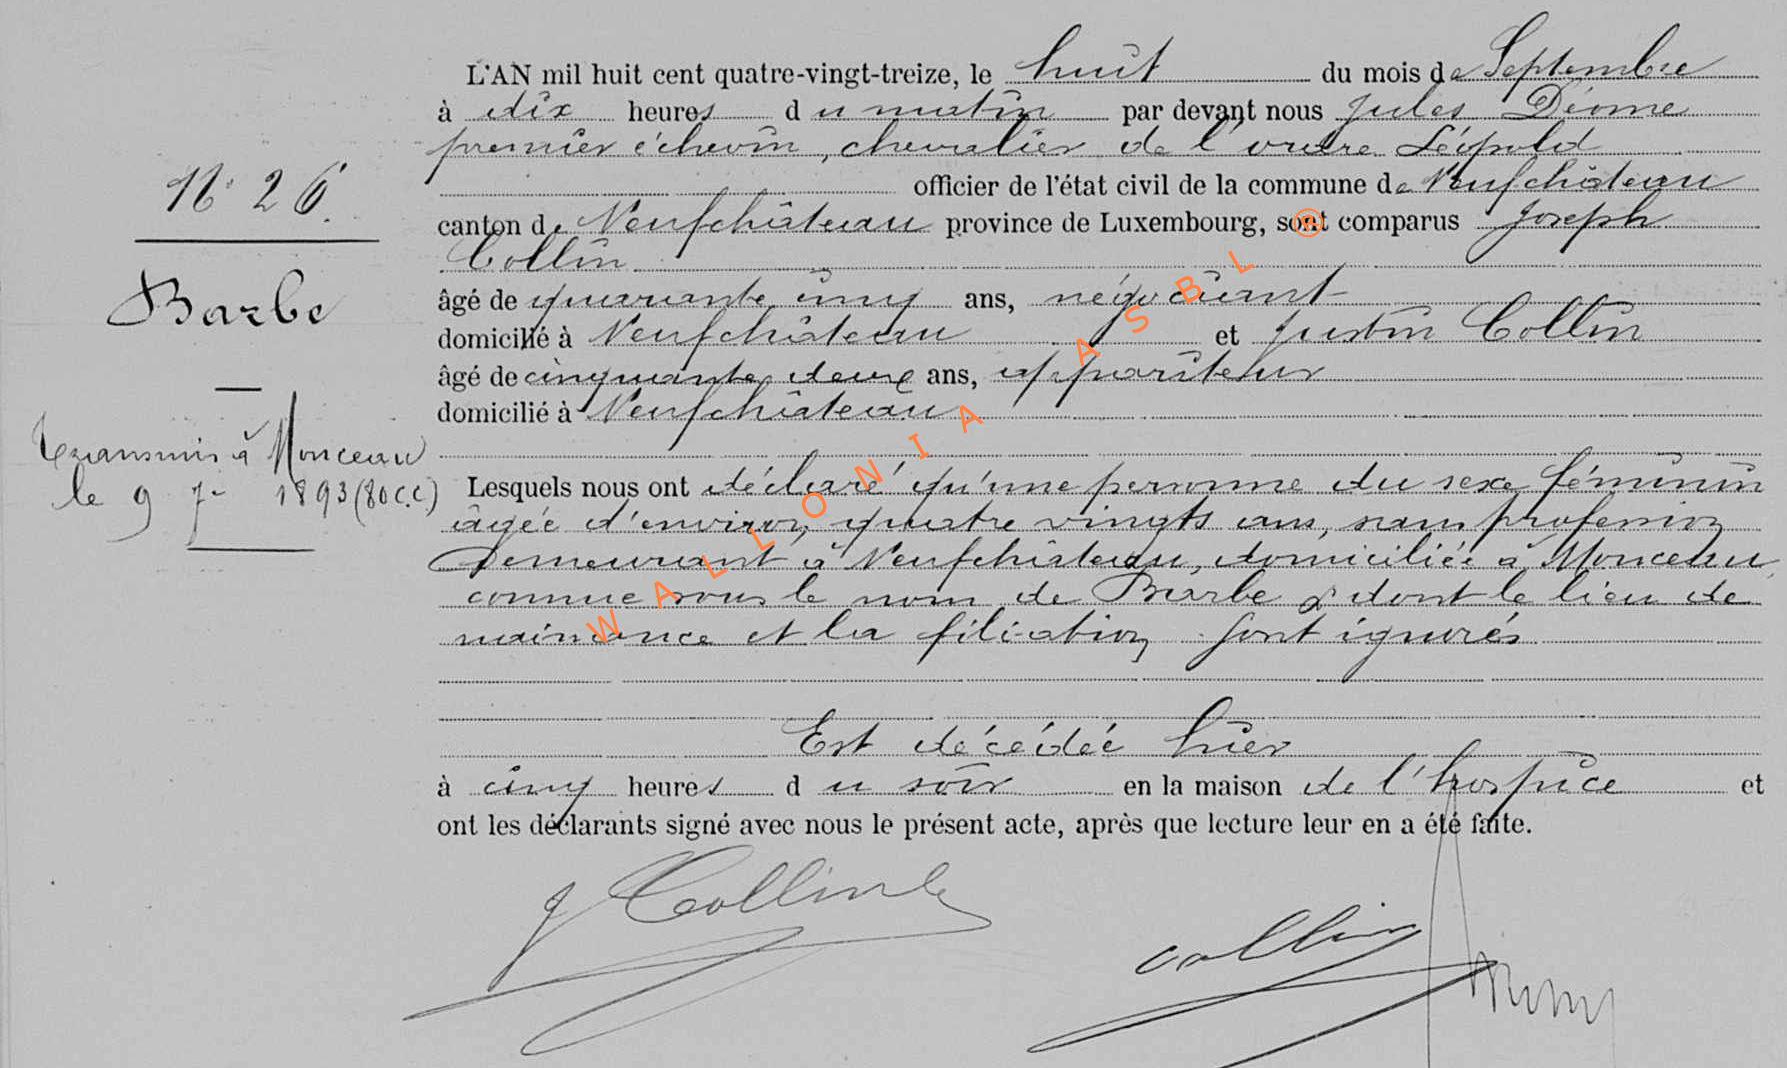 L'AN mil huit cent quatre-vingt-treize, le huit du mois de Septembre
à dix heures du matin par devant nous Jules Diome
premier échevin, chevalier de l'ordre Léopold
officier de l'état civil de la commune de Neufchâteau
canton de Neufchâteau province de Luxembourg, sont comparus Joseph
Collin
âgé de quarante cinq ans, négociant
domicilié à Neufchâteau et Justin Collin
âgé de cinquante deux ans, appariteur
domicilié à Neufchâteau
Lesquels nous ont déclaré qu'une personne du sexe féminin
âgée d'environ quatre vingts ans, sans profession
Demeurant à Neufchâteau, domiciliée à Monceau,
connue sous le nom de Barbe & dont le lieu de
naissance et la filiation sont ignorés
Est décédée hier
à cinq heures du soir en la maison de l'hospice et
ont les déclarants signé avec nous le présent acte, après que lecture leur en a été faite.
J Collin
Collin
N° 26.
Barbe
Transmis à Monceau
le 9 7- 1893 (80 C.C.)
WALLONIA ASBL ®